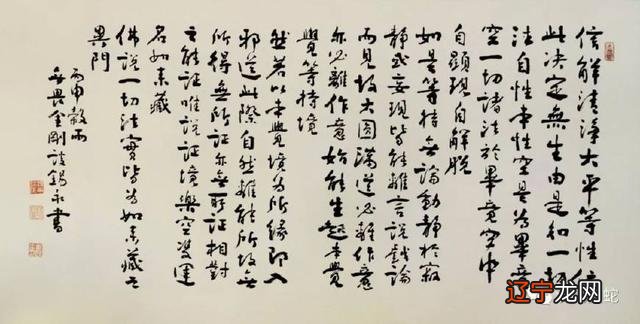 信解清淨大平等性住
此決定無生由是知一切
法自性本性空是為畢竟
空一切諸法於畢竟空中
自顯現自解脫
如是等持無論動靜於寂
靜或妄現皆能離言說戲論
而見故大圓滿道必離作意
亦必離作意始能生起本覺
覺等持境
然若以本覺境為所緣即入
邪道此際自然離能所故無
所得無所証亦無所証相對
之能証唯說証境樂空雙運
名如來藏
佛說一切法實皆為如來藏之
異門
丙申穀雨
無畏金剛談錫永書
蛇
辽宁龙网